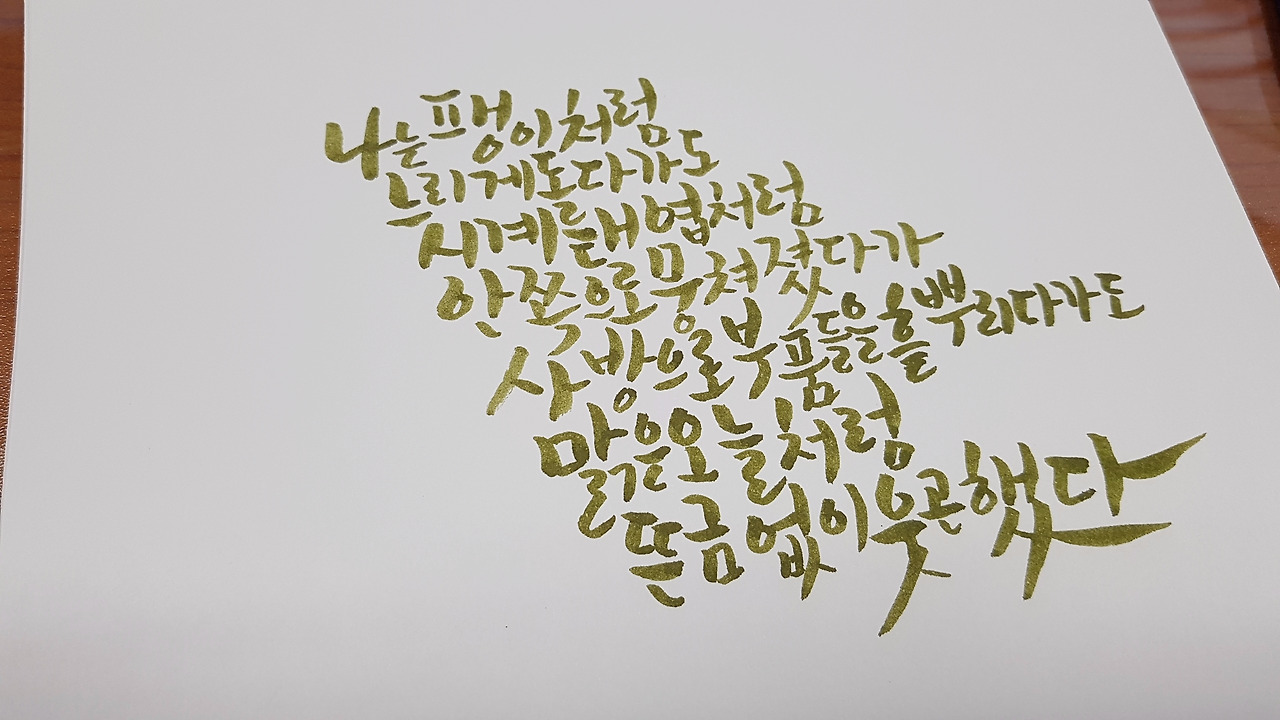 나는 프앵이처럼
느리게도다가도
시계틀태엽처럼
안쪽으로 뭉쳐졌다가
사방으로 부품들을 흩뿌리다가도
맑은 오늘처럼
뜬금없이 웃곤했다